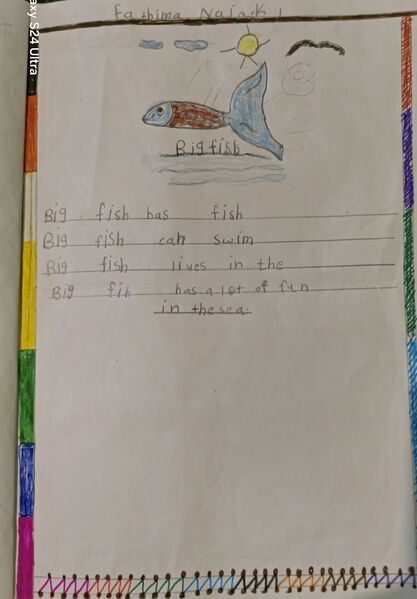 Fathima
Big fish
Big fish has fish
Big fish can swim
Big fish lives in the
Big fih has a lot of fun
in the sea.
axy S24 Ultra